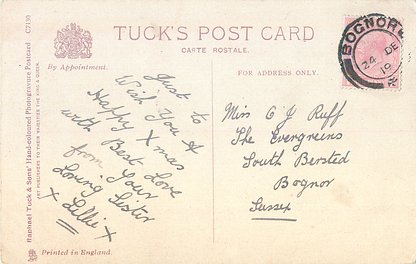 TUCK'S POST CARD
CARTE POSTALE.
By Appointment.
FOR ADDRESS ONLY.
C7130
Raphael Tuck & Sons' Hand-coloured Photogravure Postcard
ART PUBLISHERS TO THEIR MAJESTIES THE KING & QUEEN.
Just to
Wish You A
Happy Xmas
with Best Love
from Your
Loving Sister
x Lillie x
Printed in England.
BOGNOR
24 DE
Miss C J Ruff
The Evergreens
South Bersted
Bognor
Sussex